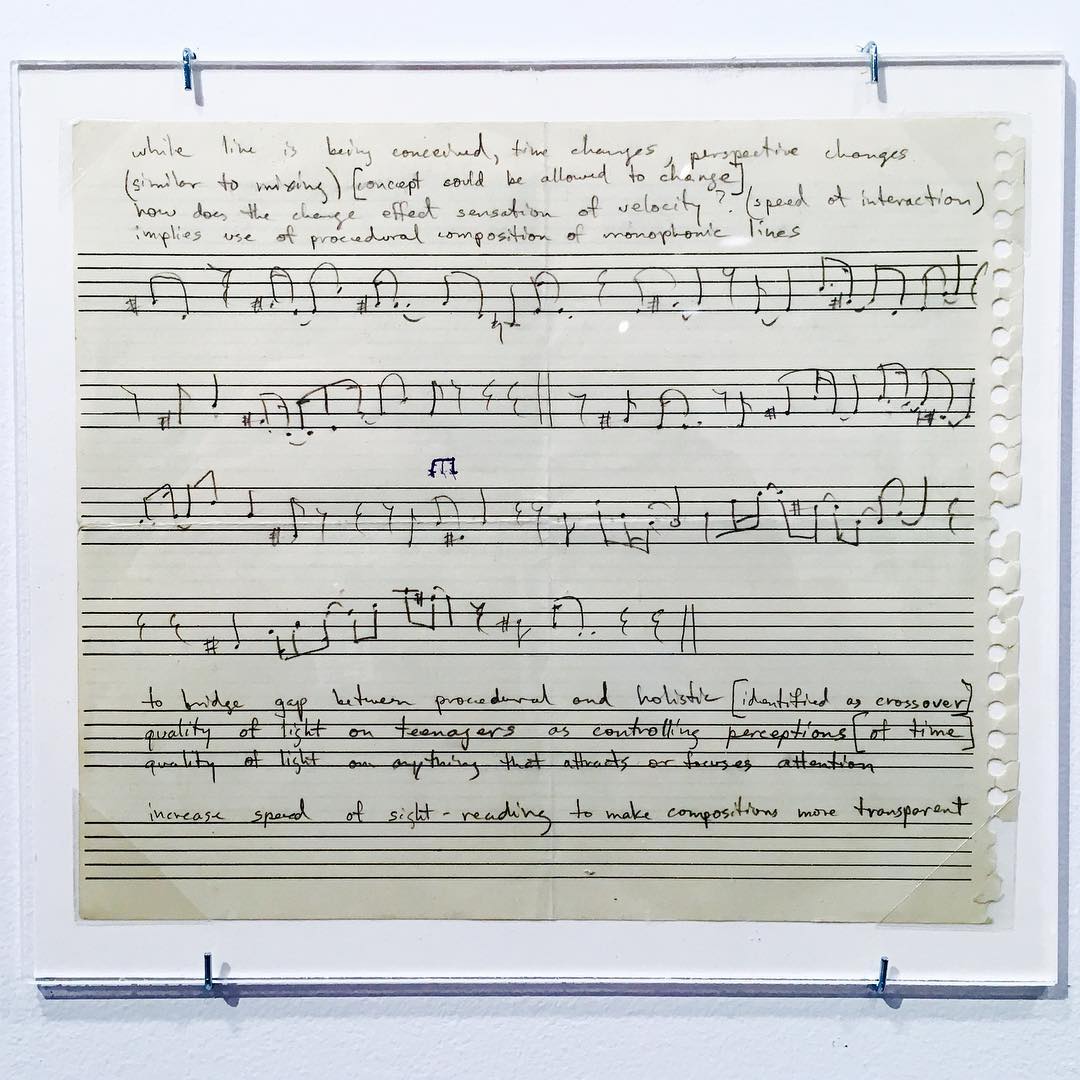 while line is being conceived, time changes, perspective changes
(similar to mixing) [concept could be allowed to change]
how does the change effect sensation of velocity? (speed of interaction)
implies use of procedural composition of monophonic lines
to bridge gap between procedural and holistic [identified as crossover]
quality of light on teenagers as controlling perceptions [of time]
quality of light on anything that attracts or focuses attention
increase speed of sight-reading to make compositions more transparent